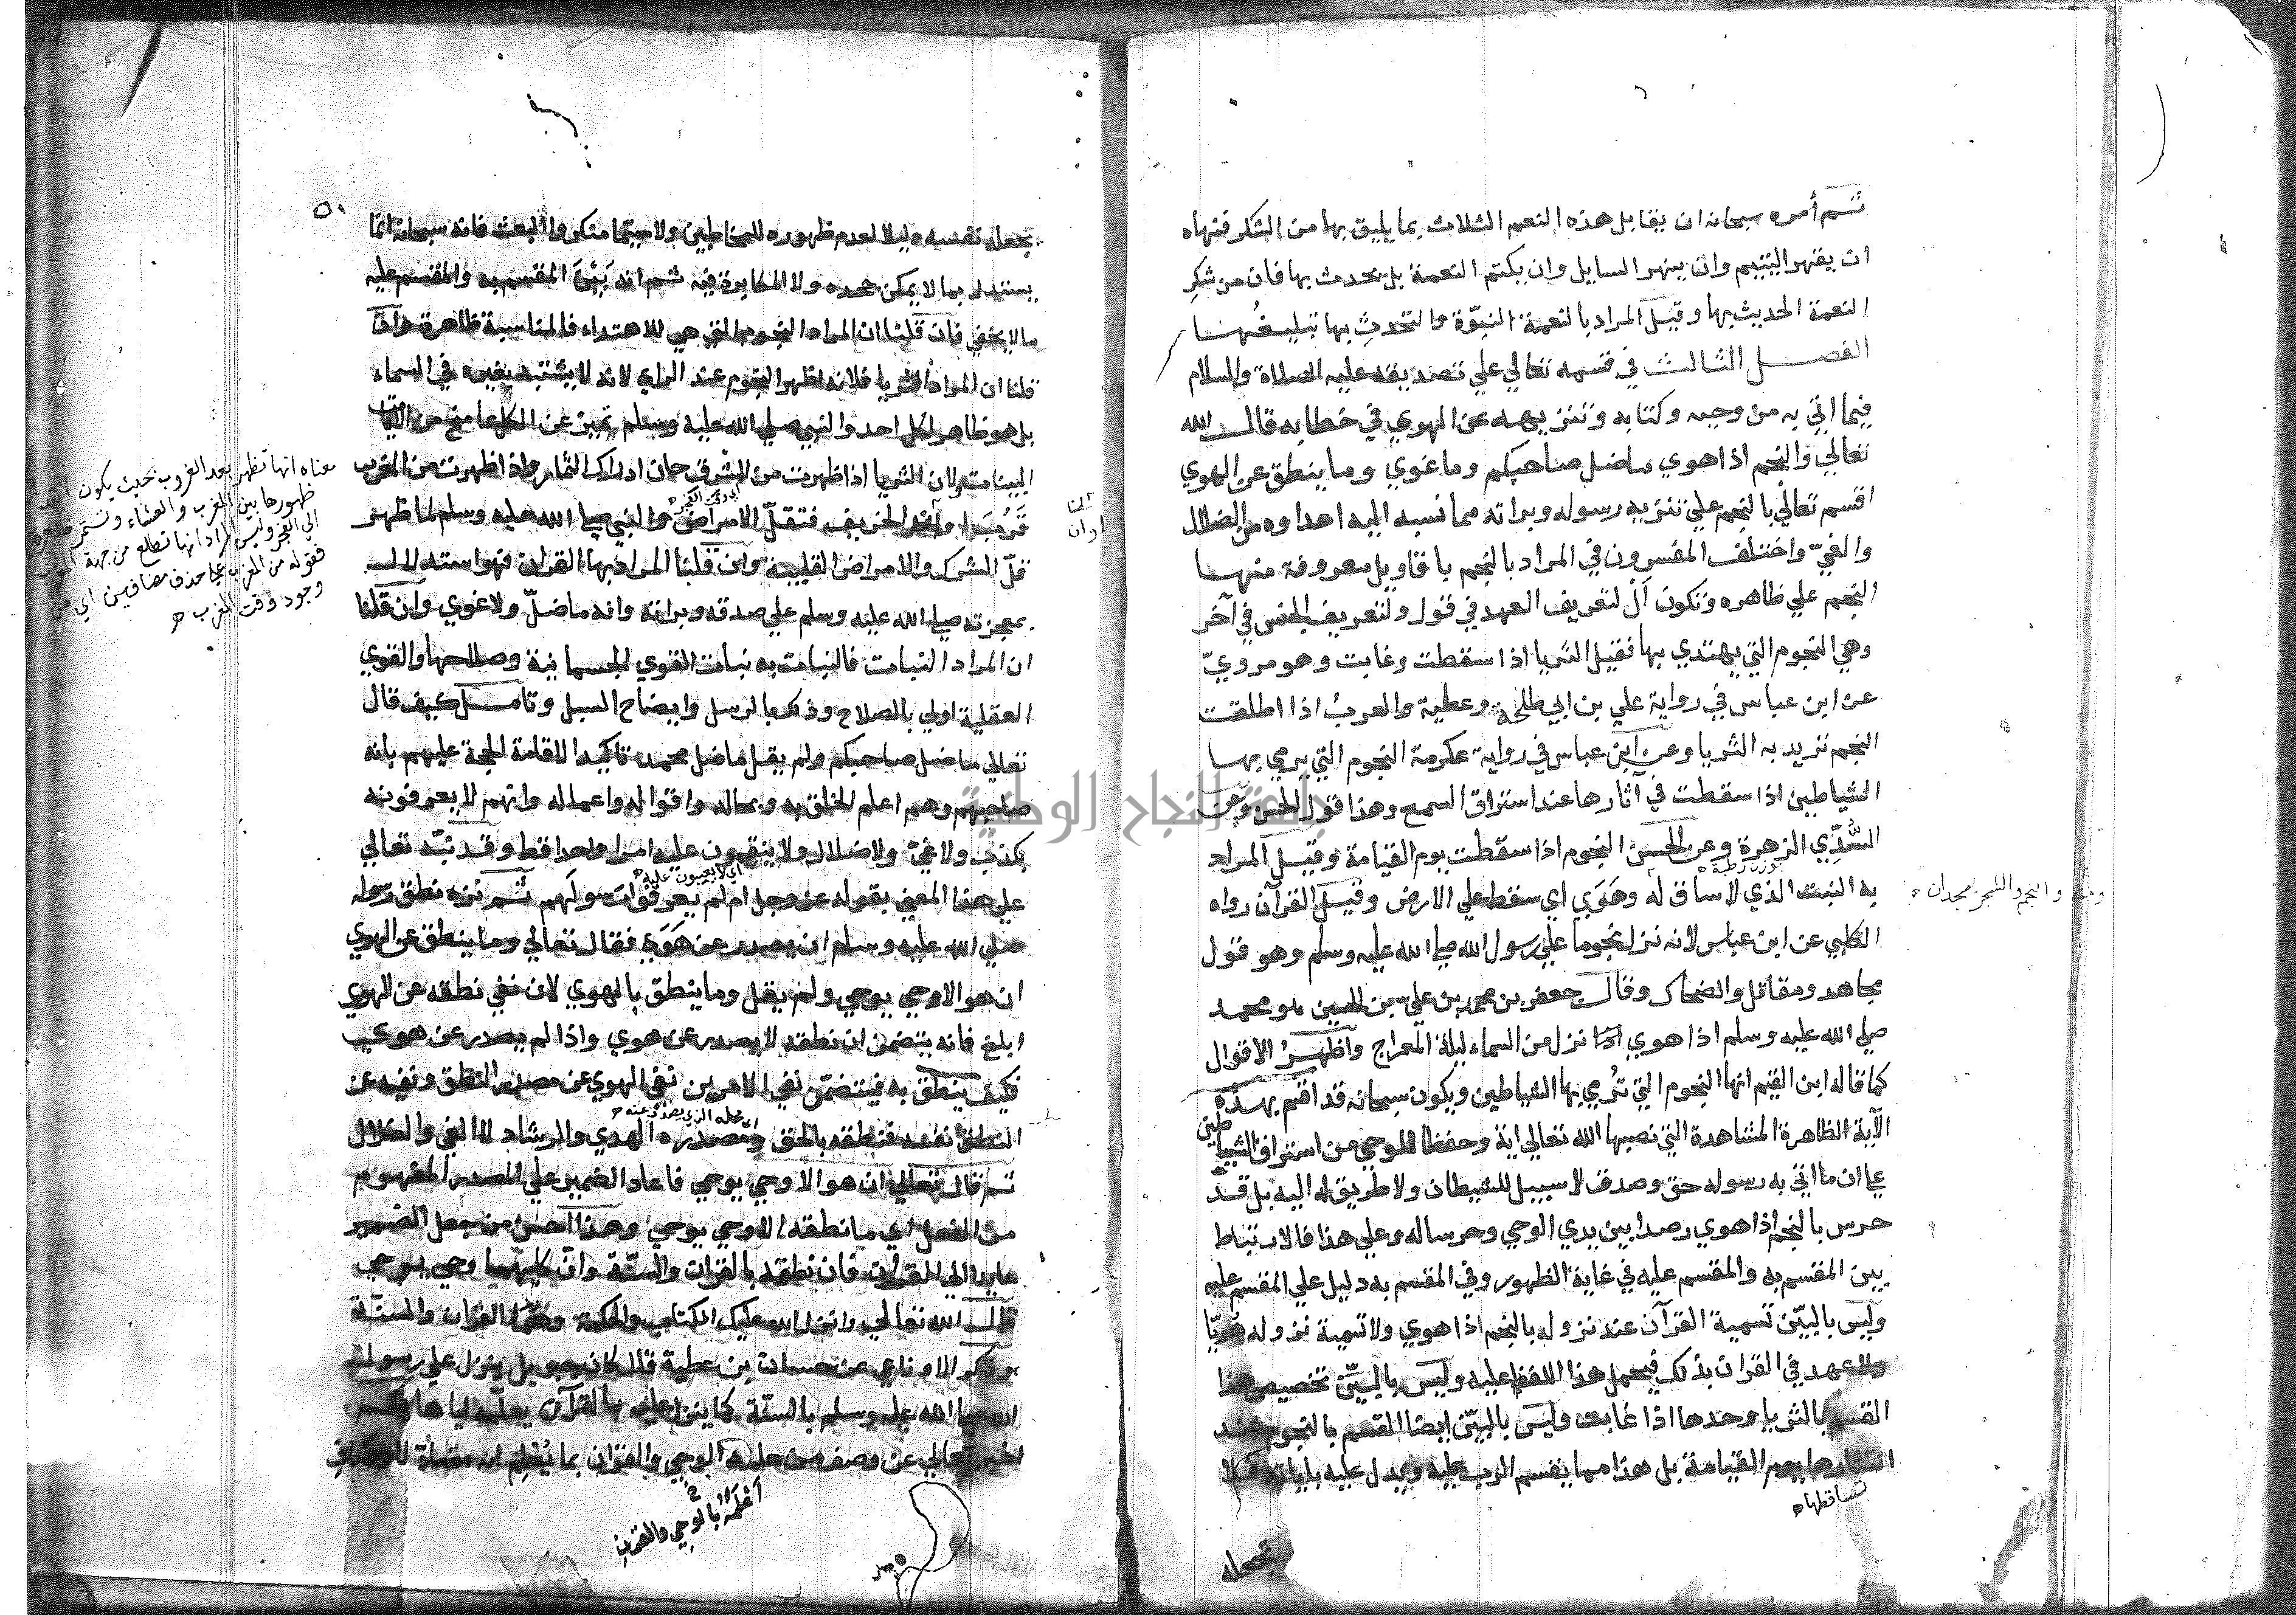 ثم أمره سبحانه ان يقابل هذه النعم الثلاث بما يليق بها من الشكر فنهاه
ان يقهر اليتيم وان ينهر السايل وان يكتم النعمة بل يحدث بها فان من شكر
النعمة الحديث بها وقيل المراد بالنعمة النبوّة والتحدث بها تبليغها
الفصل الثالث في قسمه تعالي علي تصديقه عليه الصلاة والسلام
فيما اتي به من وحيه وكتابه وتنزيهه عن الهوي في خطابه قال الله
تعالي والنجم اذا هوي ما ضل صاحبكم وما غوي وما ينطق عن الهوي
اقسم تعالي بالنجم علي تنزيه رسوله وبراته مما نسبه اليه اعداوه من الضلال
والغيّ واختلف المفسرون في المراد بالنجم باقاويل معروفة منها
النجم علي ظاهره وتكون أل لتعريف العهد في قول ولتعريف الجنس في آخر
وهي النجوم التي يهتدي بها فقيل الثريا اذا سقطت وغابت وهو مرويّ
عن ابن عباس في رواية علي بن ابي طلحة وعطية والعرب اذا اطلقت
النجم تريد به الثريا وعن ابن عباس في رواية عكرمة النجوم التي يرمي بها
الشياطين اذا سقطت في آثارها عند استراق السمع وهذا قول الحسن وعن
السُّدِّي الزهرة وعن الحسن النجوم اذا سقطت يوم القيامة وقيل المراد
به النبت الذي لا ساق له وهَوَي اي سقط علي الارض وقيل القرآن رواه
ومنه والنجم والشجر يسجدان
الكلبي عن ابن عباس لانه نزل نجوما علي رسول الله صلي الله عليه وسلم وهو قول
مجاهد ومقاتل والضحاك وقال جعفر بن محمد بن علي بن الحسين هو محمد
صلي الله عليه وسلم اذا هوي اذا نزل من السماء ليلة المعراج واظهر الاقوال
كما قاله ابن القيم انها النجوم التي تُرمي بها الشياطين ويكون سبحانه قد اقسم بهذه
الآية الظاهرة المشاهدة التي نصبها الله تعالي اية وحفظا للوحي من استراق الشياطين
علي ان ما اتي به رسوله حق وصدق لا سبيل للشيطان ولا طريق له اليه بل قد
حرس بالنجم اذا هوي رصدا بين يدي الوحي وحرسا له وعلي هذا فالارتباط
بين المقسم به والمقسم عليه في غاية الظهور وفي المقسم به دليل علي المقسم عليه
وليس بالبيّن تسمية القرآن عند نزوله بالنجم اذا هوي ولا تسمية نزوله هُويّا
ولا عهد في القران بذلك فيحمل هذا اللفظ عليه وليس بالبيِّن تخصيص هذا
القسم بالثريا وحدها اذا غابت وليس بالبيّن ايضا القسم بالنجوم عند
انتثارها يوم القيامة بل هذا مما يقسم الرب عليه ويدل عليه باياته فلا
تساقطها
تجعله
يجعله نفسه دليلا لعدم ظهوره للمخاطبين ولا سيّما منكروا البعث فانه سبحانه انما
يستدل بما لا يمكن جحده ولا المكابرة فيه ثم انه بين المقسم به والمقسم عليه
ما لا يخفي فان قلنا ان المراد النجوم التي هي للاهتداء فالمناسبة ظاهرة وان
قلنا ان المراد الثريا فلانه اظهر النجوم عند الراي لانه لا يشتبه بغيره في السماء
بل هو ظاهر لكل احد والنبي صلي الله عليه وسلم تميز عن الكل بما منح من الايات
البينات ولان الثريا اذا ظهرت من المشرق حان ادراك الثمار واذا ظهرت من المغرب
قَرُبَ اواخر الخريف فتقلّ الامراض والنبي صلي الله عليه وسلم لما ظهر
قلّ الشرك والامراض القلبية وان قلنا المراد بها القران فهو استدلال
بمعجزته صلي الله عليه وسلم علي صدقه وبراته وانه ما ضلّ ولا غوي وان قلنا
ان المراد النبات فالنبات به نبات القوي الجسمانية وصلاحها والقوي
العقلية اولي بالصلاح وذلك بالرسل وايضاح السبل وتامل كيف قال
تعالي ما ضل صاحبكم ولم يقل ما ضل محمد تاكيدا لاقامة الحجة عليهم بانه
صاحبهم وهم اعلم الخلق به وبحاله واقواله واعماله وانهم لا يعرفونه
بكذب ولا غيّ ولا ضلال ولا ينقمون عليه امرا واحدا قط وقد نبّه تعالي
اي لا يعيبون عليه
علي هذا المعني بقوله عز وجل ام لم يعرفوا رسولهم ثم نزه نطق رسوله
صلي الله عليه وسلم ان يصدر عن هَوَي فقال تعالي وما ينطق عن الهوي
ان هو الا وحي يوحي ولم يقل وما ينطق بالهوي لان نفي نطقه عن الهوي
ابلغ فانه يتضمن ان نطقه لا يصدر عن هوي واذا لم يصدر عن هوي
فكيف ينطق به فيتضمّن نفي الامرين نفي الهوي عن مصدر النطق ونفيه عن
النطق نفسه فنطقه بالحق ومصدره الهدي والرشاد لا الغي والضلال
ثم قال تعالي ان هو الا وحي يوحي فاعاد الضمير علي المصدر المفهوم
من الفعل اي ما نطقه الا وحي يوحي وهذا احسن من جعل الضمير
عايدا الي القران فان نطقه بالقران والسنّة وان كليهما وحي يوحي
قال الله تعالي وانزل الله عليك الكتاب والحكمة وهما القران والسنّة
وذكر الاوزاعي عن حسان بن عطية قال كان جبريل ينزل علي رسول
الله صلي الله عليه وسلم بالسنّة كما ينزل عليه بالقرآن يعلّمه اياها ثم
اخبر تعالي عن وصف من علمه الوحي والقران بما يُعْلم انه مضادّ لاوصاف
معناه انها تظهر بعد الغروب بحيث يكون
ظهورها بين المغرب والعشاء وتستمر ظاهرة
الي الفجر وليس المراد انها تطلع من جهة المغرب
فقوله من المغرب علي حذف مضافين اي من
وجود وقت المغرب
جامعة النجاح الوطنية